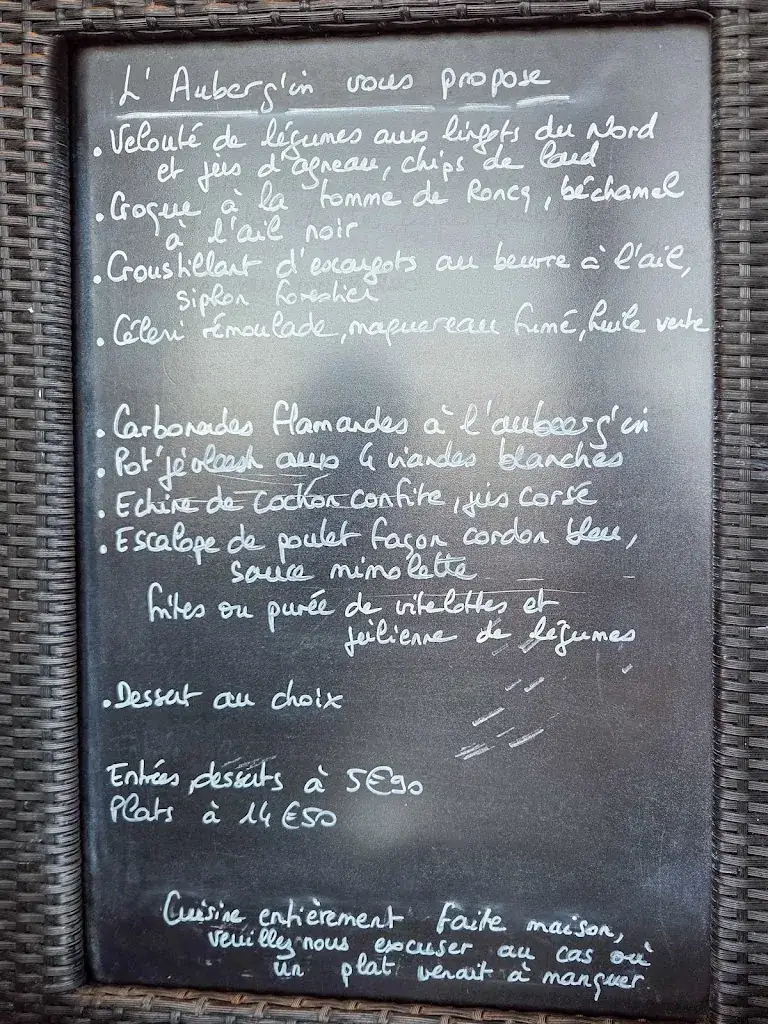 L'Auberg'in vous propose
• Velouté de légumes aux lingots du Nord
et jus d'agneau, chips de lard
• Croque à la tomme de Roncq, béchamel
à l'ail noir
• Croustillant d'escargots au beurre à l'ail,
siphon forestier
• Céleri rémoulade, maquereau fumé, huile verte
• Carbonades flamandes à l'auberg'in
• Pot'je vleesh aux 4 viandes blanches
• Echine de cochon confite, jus corsé
• Escalope de poulet façon cordon bleu,
sauce mimolette
frites ou purée de vitelottes et
julienne de légumes
• Dessert au choix
Entrées, desserts à 5€90
Plats à 14€50
Cuisine entièrement faite maison,
veuillez nous excuser au cas où
un plat venait à manquer